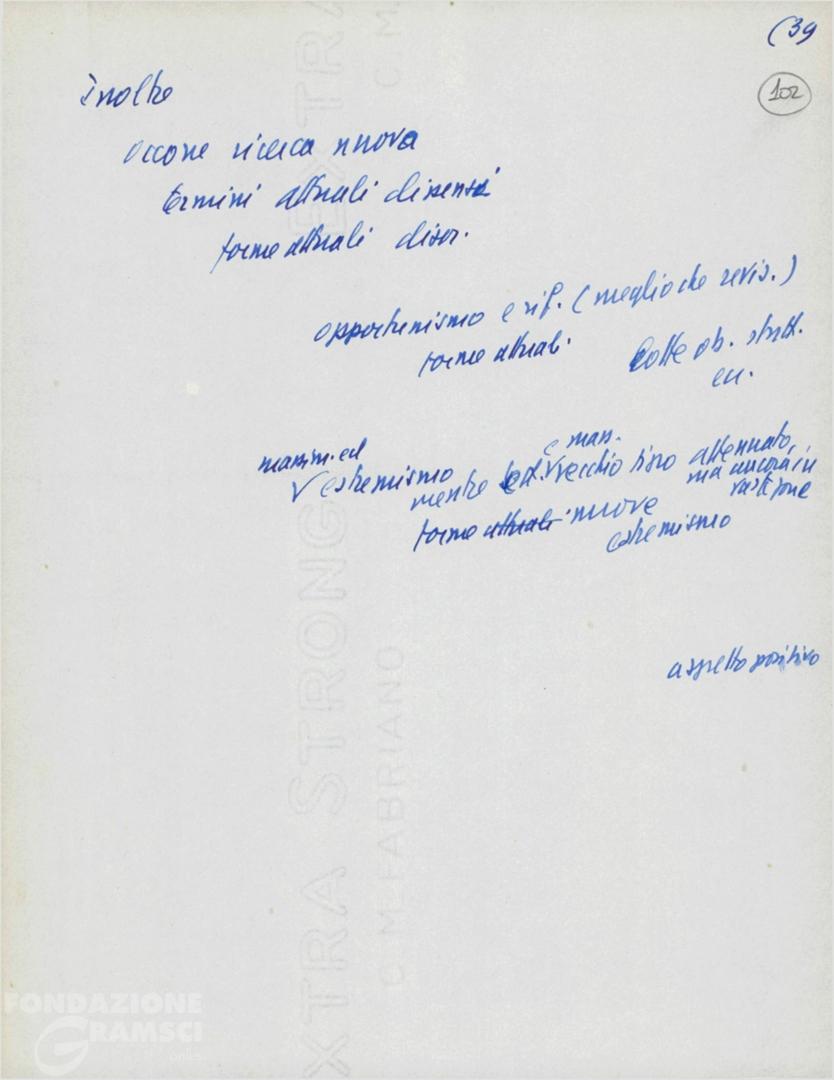 (39
102
Inoltre
occorre ricerca nuova
termini attuali dissensi
forme attuali disor.
opportunismo e rif. (meglio che revis.)
forme attuali
lotte ob. strutt.
ec.
massim. ed
e mass.
√ estremismo
mentre vecchio tipo attenuato,
ma ancora in
forme attuali nuove
estremismo
aspetto positivo
EXTRA STRONG EXTRA
C.M.FABRIANO C.M.
FONDAZIONE
GRAMSCI
onlus